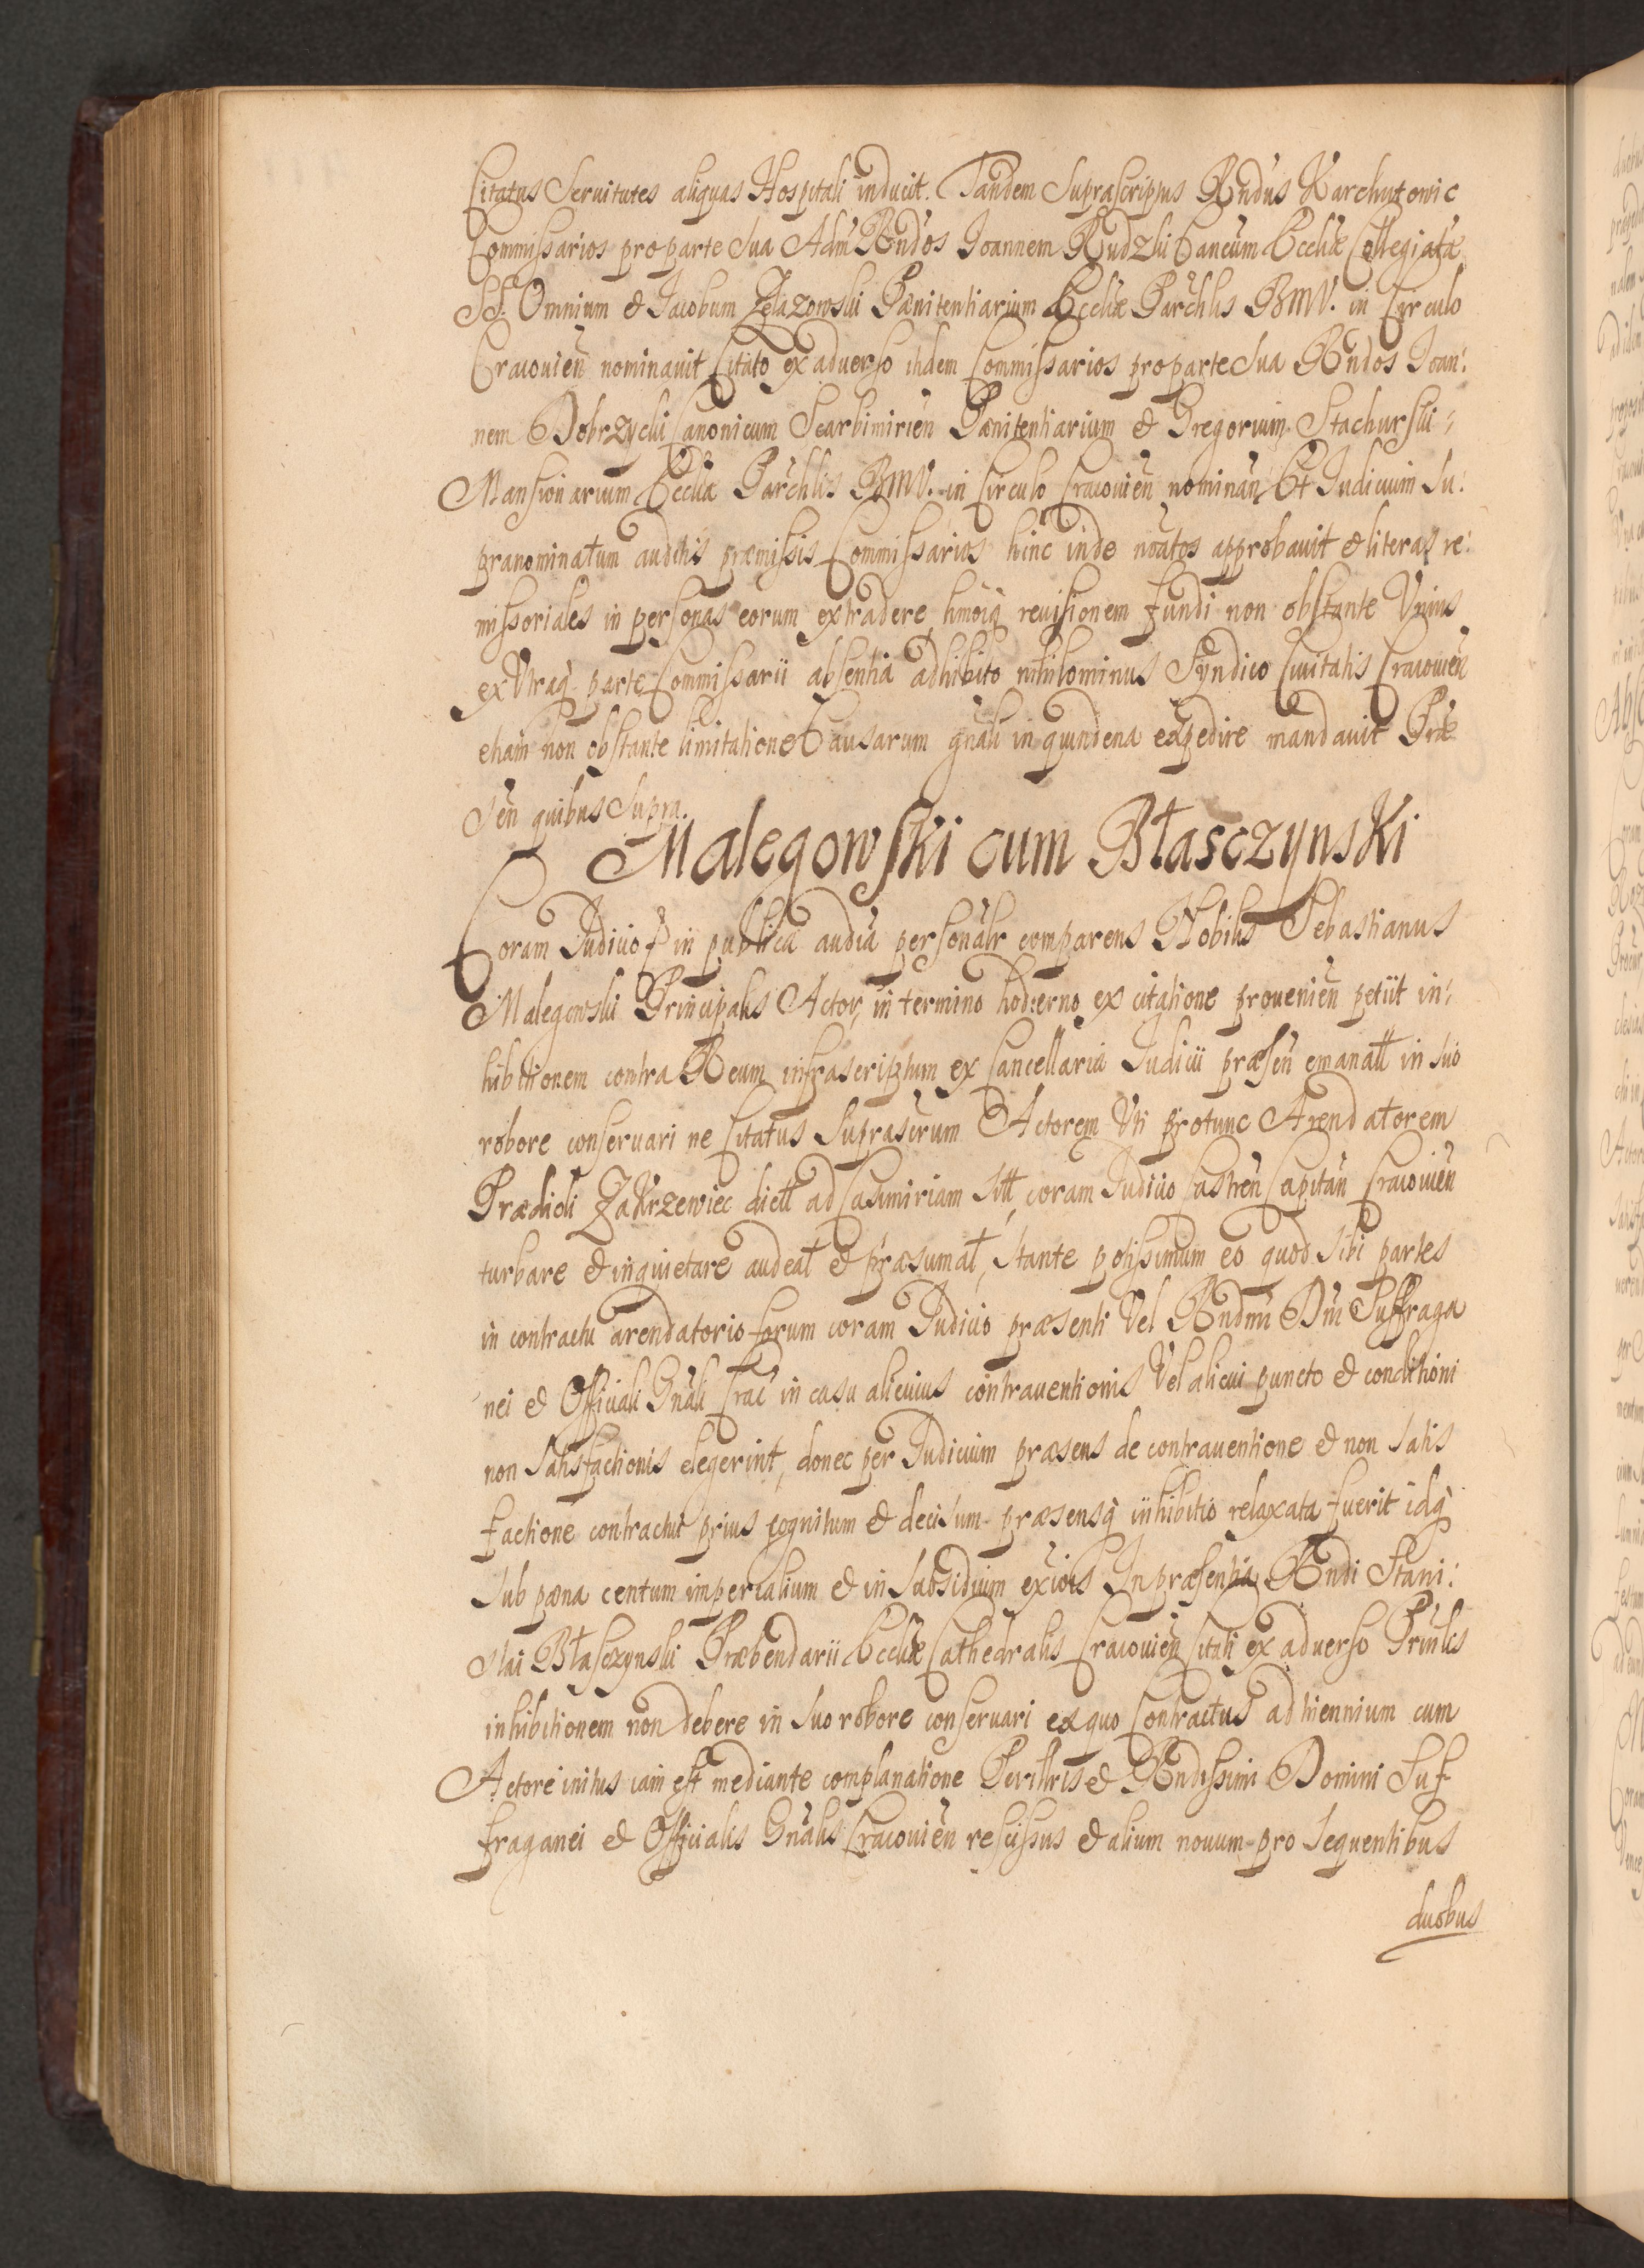 Citatus Servitutes aliquas Hospitali inducit. Tandem Suprascriptus Rndus Karchutowic
Commissarios pro parte Sua Adm Rndos Joannem Rudzki Cancum Eccliæ Collegiatæ
SS. Omnium et Jacobum Zelazowski Pænitentiarium Eccliæ Parchlis BMV. in Circulo
Cracovien nominavit Citato ex adverso itidem Commissarios pro parte Sua Rndos Joan:
nem Dobrzycki Canonicum Scarbimirien Pænitentiarium et Gregorium Stachurski:
Mansionarium Eccliæ Parchlis BMV. in Circulo Cracovien nominan Et Judicium Su:
pranominatum auditis præmissis Commissarios hinc inde noatos approbavit et literas re:
missoriales in personas eorum extradere hmoiq revisionem fundi non obstante Unius
ex Utraq parte Commissarii absentia adhibito nihilominus Syndico Civitatis Cracovien
etiam non obstante limitatione Causarum gnali in quindena expedire mandavit Præ
sen quibus Supra.
Malegowski cum Błasczynski
Coram Judicio in publica audia personalr comparens Nobilis Sebastianus
Malegowski Principalis Actor, in termino hodierno ex citatione provenien petiit in:
hibitionem contra Reum infrascriptum ex Cancellaria Judicii præsen emanatt in suo
robore conservari ne Citatus Suprascrum Actorem Uti protunc Arendatorem
Prædioli Zakrzewiec dictt ad Casimiriam sitt, coram Judicio Castren Capitan Cracovien
turbare et inquietare audeat et præsumat, stante potissimum eo quod sibi partes
in contractu arendatorio forum coram Judicio præsenti Vel Rndmi Dni Suffraga
nei et Officiali Gnali Crac in casu alicuius contraventionis Vel alicui puncto et conditioni
non Satisfactionis elegerint, donec per Judicium præsens de contraventione et non Satis
factione contractui prius cognitum et decisum præsensq inhibitio relaxata fuerit idq
sub pæna centum imperialium et in Subsidium exiois In præsentia Rndi Stani:
slai Błasczynski Præbendarii Eccliæ Cathedralis Cracovien Citati ex adverso Prinlis
inhibitionem non debere in suo robore conservari ex quo Contractus ad triennium cum
Actore initus iam est mediante complanatione Perillris et Rndissimi Domini Suf
fraganei et Officialis Gnalis Cracovien rescissus et alium novum pro sequentibus
duobus